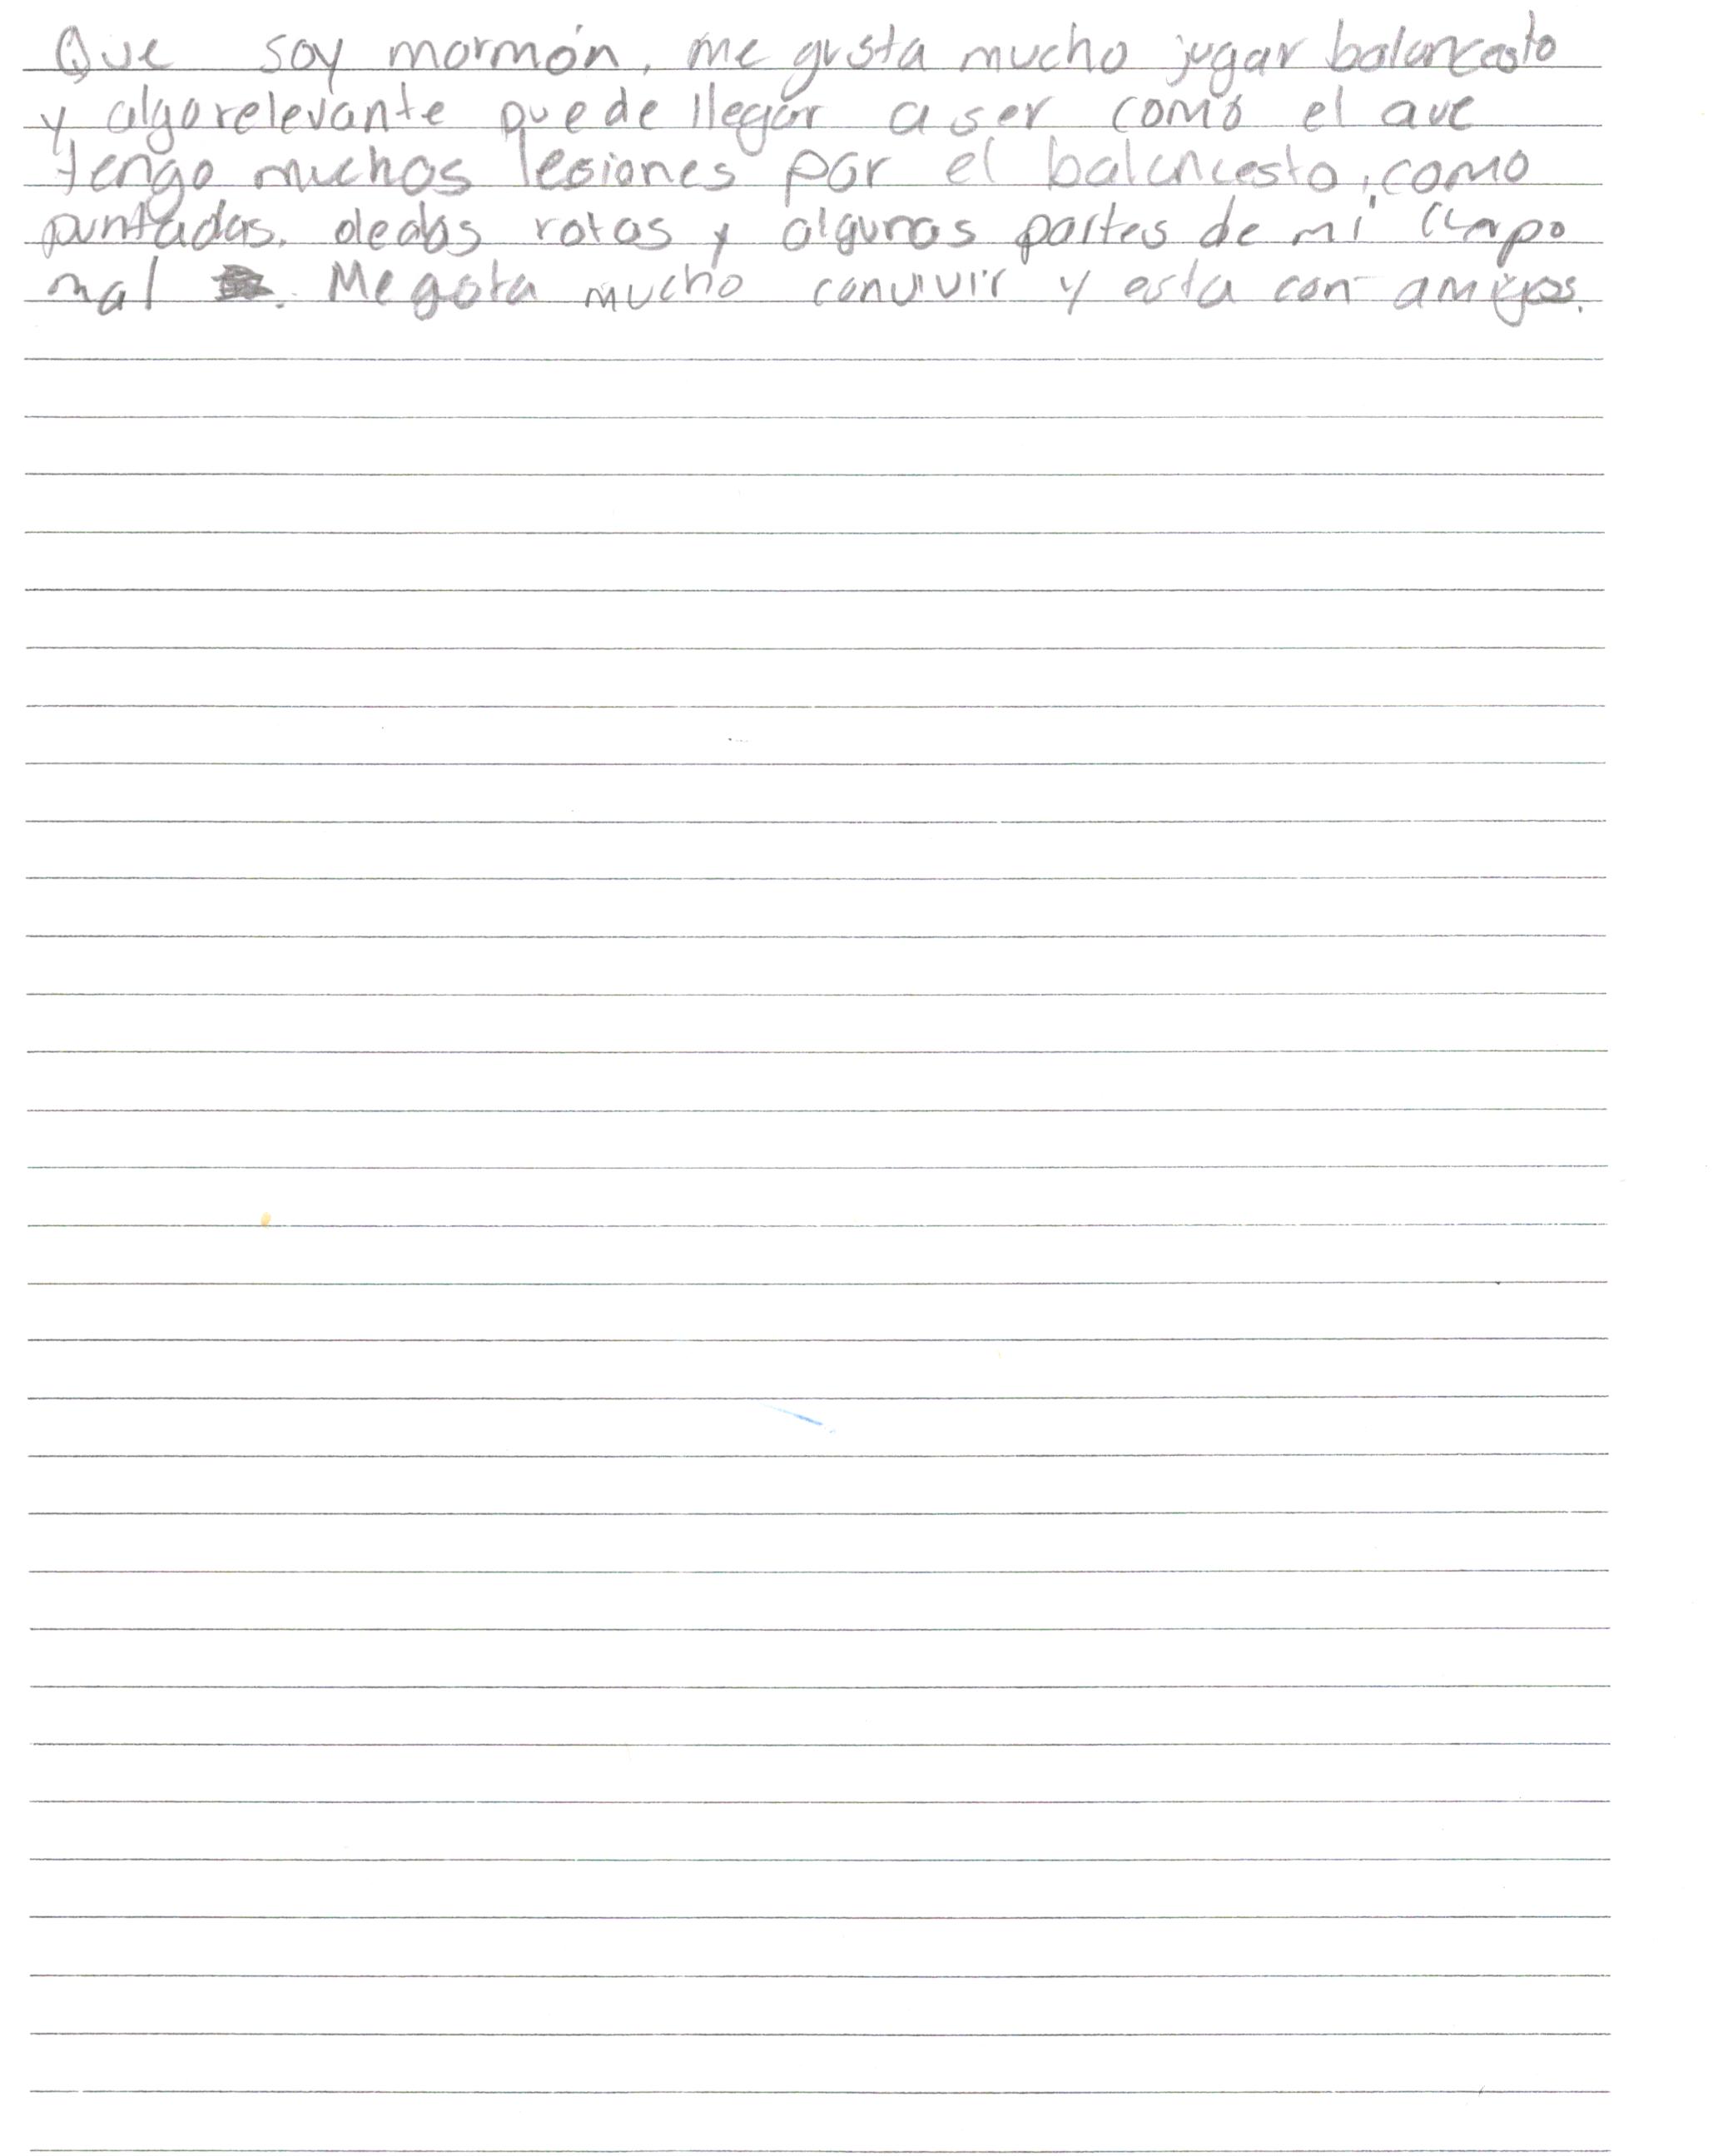 Que soy mormón, me gusta mucho jugar baloncesto
y algo relevante puede llegar a ser como el que
tengo muchas lesiones por el baloncesto, como
puntadas, dedos rotos y algunas partes de mi cuerpo
mal. Me gusta mucho convivir y esta con amigos.